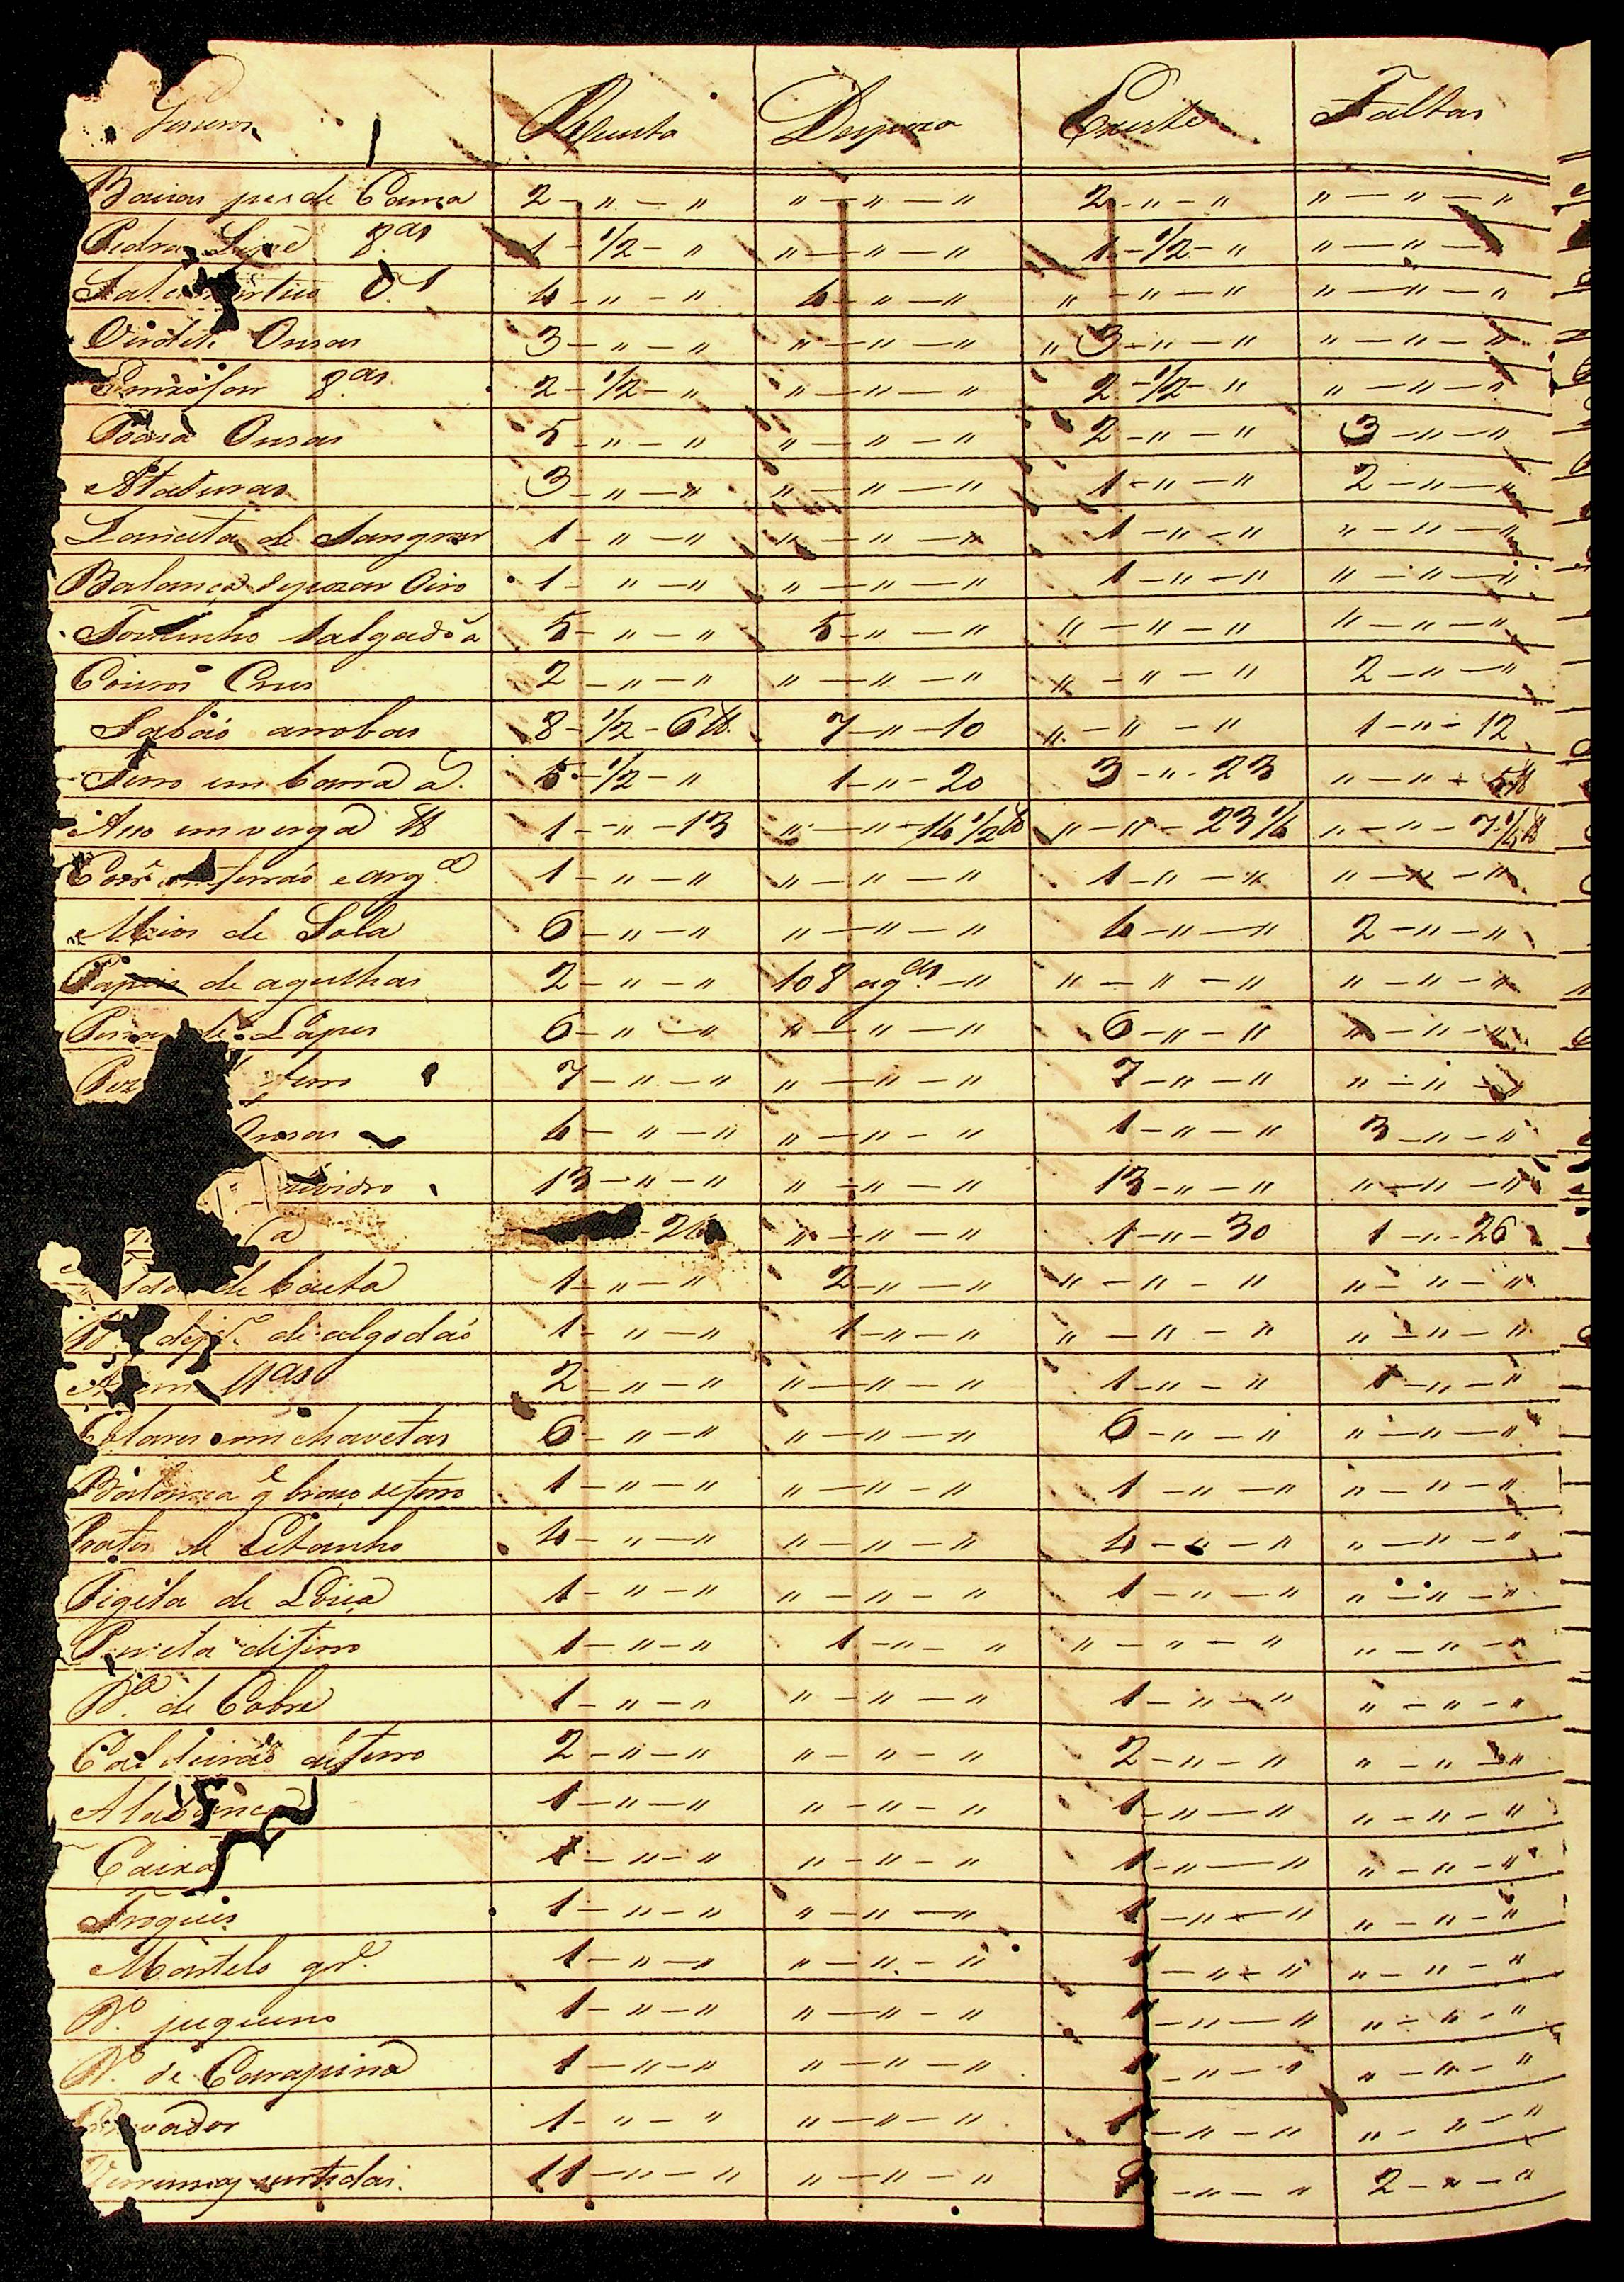 Generos Despeza Existe Faltas
pes de Cama 2 - " - " " - " - " 2 - " - " " - " - "
Pedra Lipe 8.as 1 - 1/2 - " " - " - " 1 - 1/2 - " " - " -
4 - " - " 4 - " - " " - " - " " - " - "
Onsas 3 - " - " " - " - " " 3 - " - " " - " - "
8.as 2 - 1/2 - " " - " - " 2 - 1/2 - " " - " - "
Onsas 5 - " - " " - " - " 2 - " - " 3 - " - "
Ataduras 3 - " - " " - " - " 1 - " - " 2 - " - "
Lanceta de Sangrar 1 - " - " " - " - " 1 - " - " " - " - "
Balança de pezar Oiro 1 - " - " " - " - " 1 - " - " " - " - "
Toucinho salgado a 5 - " - " 5 - " - " " - " - " " - " - "
Couros Crus 2 - " - " " - " - " " - " - " 2 - " - "
Sabão arrobas 8 - 1/2 - 6 lb 7 - " - 10 " - " - " 1 - " - 12
Ferro em barra a. 5 - 1/2 - " 1 - " - 20 3 - " - 23 " - " - 5 lb
Aso em verga lb 1 - " - 13 " - " - 16 1/2 lb " - " - 23 " - " - 7
1 - " - " " - " - " 1 - " - " " - " - "
Meios de Sola 6 - " - " " - " - " 4 - " - " 2 - " - "
Papeis de agulhas 2 - " - " 108 ag.as - " " - " - " " - " - "
de Lapes 6 - " - " " - " - " 6 - " - " " - " - "
ferro 7 - " - " " - " - " 7 - " - " " - " -
4 - " - " " - " - " 1 - " - " 3 - " - "
vidro 13 - " - " " - " - " 13 - " - " " - " - "
" - " - " 1 - " - 30 1 - " - 26
de baeta 1 - " - " 2 - " - " " - " - " " - " - "
de algodão 1 - " - " 1 - " - " " - " - " " - " - "
2 - " - " " - " - " 1 - " - " 1 - " - "
Colares com chavetas 6 - " - " " - " - " 6 - " - " " - " - "
Balança braço de ferro 1 - " - " " - " - " 1 - " - " " - " - "
Pratos de Estanho 4 - " - " " - " - " 4 - " - " " - " - "
Tigela de Loisa 1 - " - " " - " - " 1 - " - " " - " - "
de ferro 1 - " - " 1 - " - " " - " - " " - " - "
D.a de Cobre 1 - " - " " - " - " 1 - " - " " - " - "
Caldeirão de ferro 2 - " - " " - " - " 2 - " - " " - " - "
Alabanca 1 - " - " " - " - " 1 - " - " " - " - "
Caixa 1 - " - " " - " - " 1 - " - " " - " - "
1 - " - " " - " - " 1 - " - " " - " - "
Martelo gr.e 1 - " - " " - " - " 1 - " - " " - " - "
D.o piqueno 1 - " - " " - " - " 1 - " - " " - " - "
D.o de Carapina 1 - " - " " - " - " 1 - " - " " - " - "
1 - " - " " - " - " 1 - " - " " - " - "
Verrumas surtidas. 11 - " - " " - " - " - " - " 2 - " - "